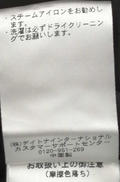 ・スチームアイロンをお勧めし
ます。
・洗濯は必ずドライクリーニン
グでお願いします。
(株)デイトナインターナショナル
カスタマーサポートセンター
0120-951-269
中国製
お取扱い上の御注意
(摩擦色落ち)